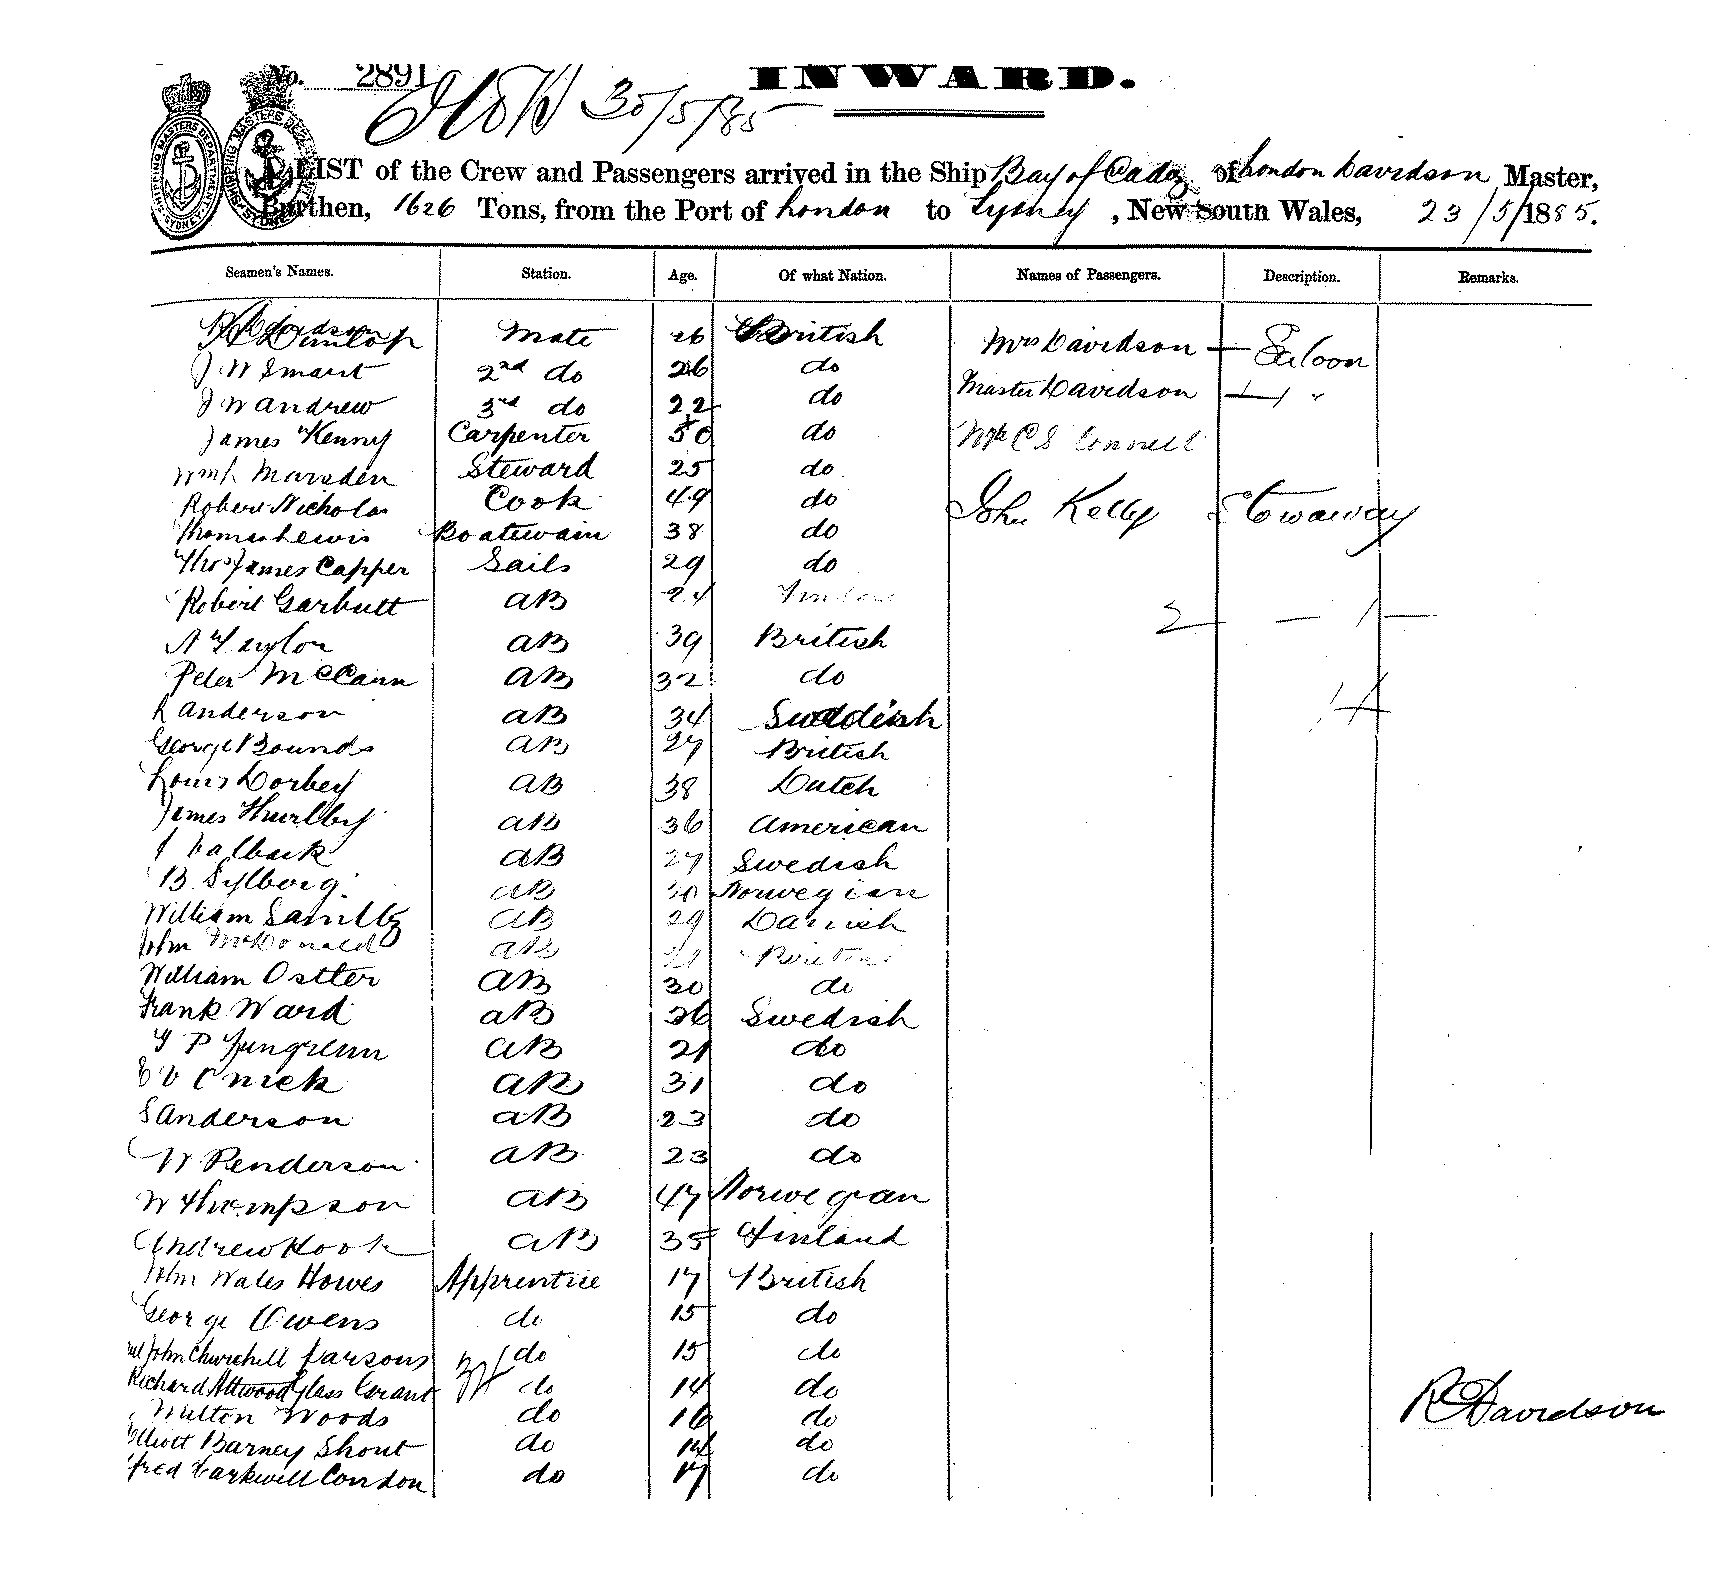 No. 2891 INWARD.
30/5/85
LIST of the Crew and Passengers arrived in the Ship Bay of Cadiz of London Davidson Master,
Burthen, 1626 Tons, from the Port of London to Sydney, New South Wales, 23/5/1885.
Seamen's Names. Station. Age. Of what Nation. Names of Passengers. Description. Remarks.
Dunlop Mate 26 British Mrs Davidson — Saloon
J W Smart 2nd do 26 do
J W Andrew 3rd do 22 do Master Davidson — "
James Kenny Carpenter 50 do Mr C S Connell
Wm Marsden Steward 25 do
Robert Nicholas Cook 49 do John Kelly Stowaway
Thomas Lewis Boatswain 38 do
Thos James Capper Sails 29 do
Robert Garbutt AB 24
2 — 1 —
A Taylor AB 39 British
Peter McCann AB 32 do
Anderson AB 34 Swedish
George Bounds AB 27 British
Louis Dorbey AB 38 Dutch
James Thurlby AB 36 American
AB 27 Swedish
B. Sylborg AB Norwegian
William AB 29 Danish
John McDonald AB 21
William Ostler AB 30 do
Frank Ward AB 26 Swedish
AB 21 do
AB 31 do
S Anderson AB 23 do
W Renderson AB 23 do
W Thompson AB 47 Norwegian
Andrew Hook AB 35 Finland
John Wales Howes Apprentice 17 British
George Owens do 15 do
John Churchill Parsons do 15 do
Richard Attwood Glass Grant do 14 do
Milton Woods do 16 do
R Davidson
Elliott Barney Shout do 14 do
Condon do 17 do